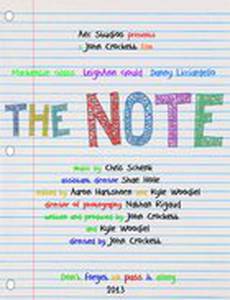 Arc Studios presents
a John Crockett film
Mackenzie Leigh Gould Danny Licciardello
THE NOTE
music by Chris Schenk
assistant director Shae Hoile
edited by Aaron Hartshorn and Kyle Woodiel
director of photography Nathan Rigaud
written and produced by John Crockett
and Kyle Woodiel
directed by John Crockett
Don't forget to pass it along
2013